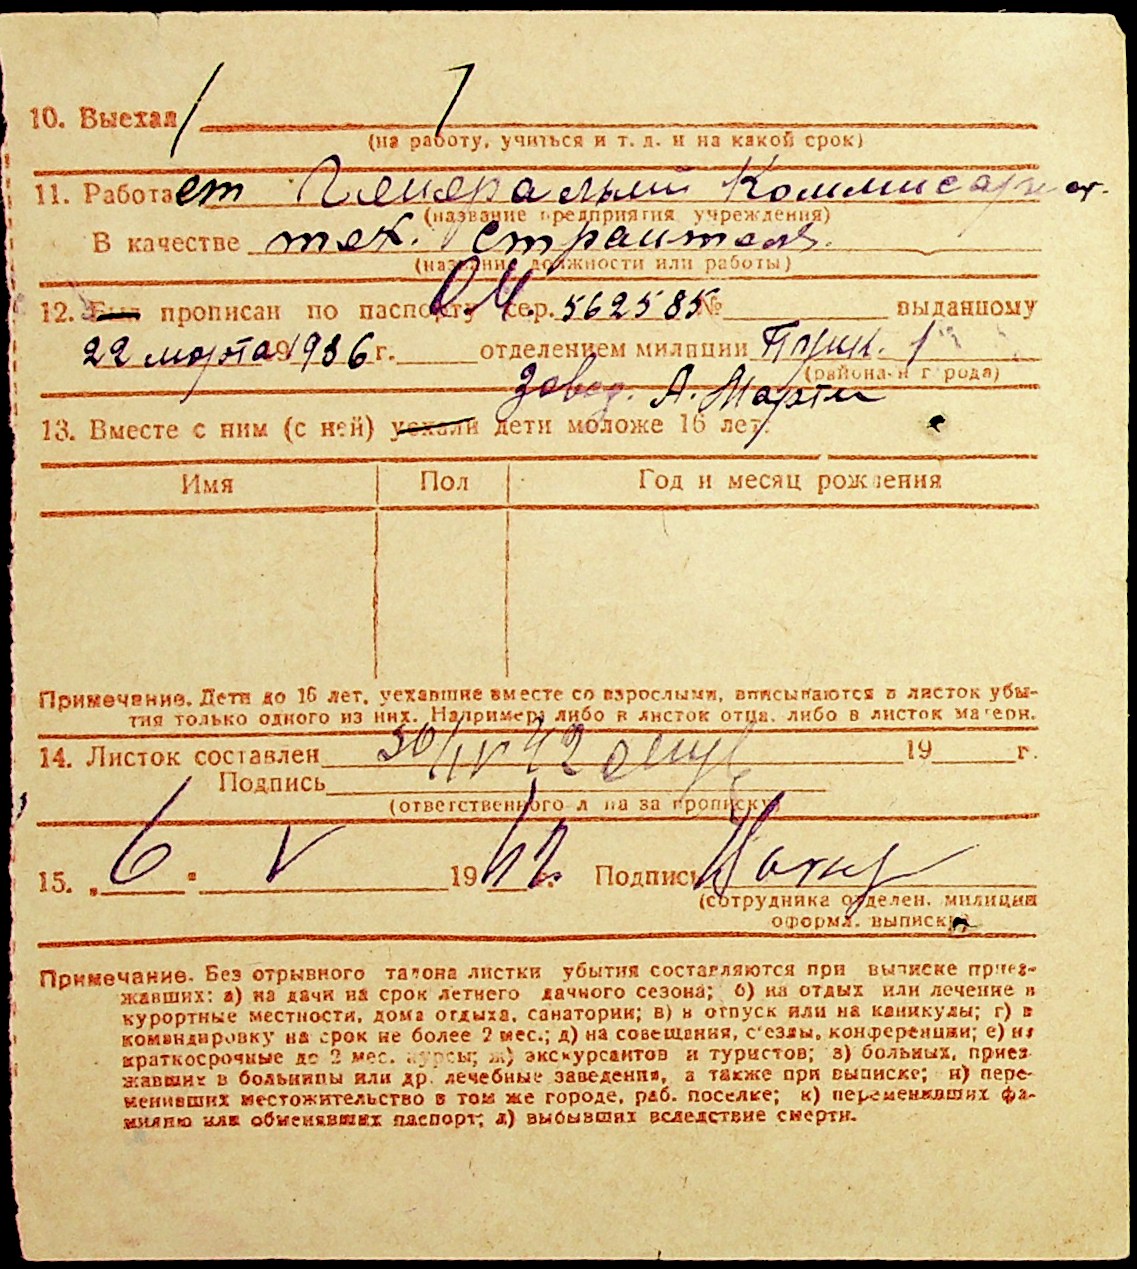 10. Выехал
(на работу, учиться и т. д. и на какой срок)
11. Работает Генеральный Коммисариат.
(название предприятия учреждения)
В качестве тех. строителя.
(название должности или работы)
12. Был прописан по паспорту сер. 562585 № выданному
22 марта 1936 г. отделением милиции
(района и города)
Завод. А. Марти
13. Вместе с ним (с ней) уехали дети моложе 16 лет:
Имя Пол Год и месяц рождения
Примечание. Дети до 16 лет, уехавшие вместе со взрослыми, вписываются в листок убы-
тия только одного из них. Например: либо в листок отца, либо в листок матери.
14. Листок составлен 30/IV 42 19 г.
Подпись
(ответственного лица за прописку)
15. „6" V 1942 г. Подпись
(сотрудника отделен. милиции
оформл. выписку)
Примечание. Без отрывного талона листки убытия составляются при выписке приез-
жавших: а) на дачи на срок летнего дачного сезона; б) на отдых или лечение в
курортные местности, дома отдыха, санатории; в) в отпуск или на каникулы; г) в
командировку на срок не более 2 мес.; д) на совещания, с'езды, конференции; е) на
краткосрочные до 2 мес. курсы; ж) экскурсантов и туристов; з) больных, приез-
жавших в больницы или др. лечебные заведения, а также при выписке; и) пере-
менивших местожительство в том же городе, раб. поселке; к) переменивших фа-
милию или обменявших паспорт; л) выбывших вследствие смерти.